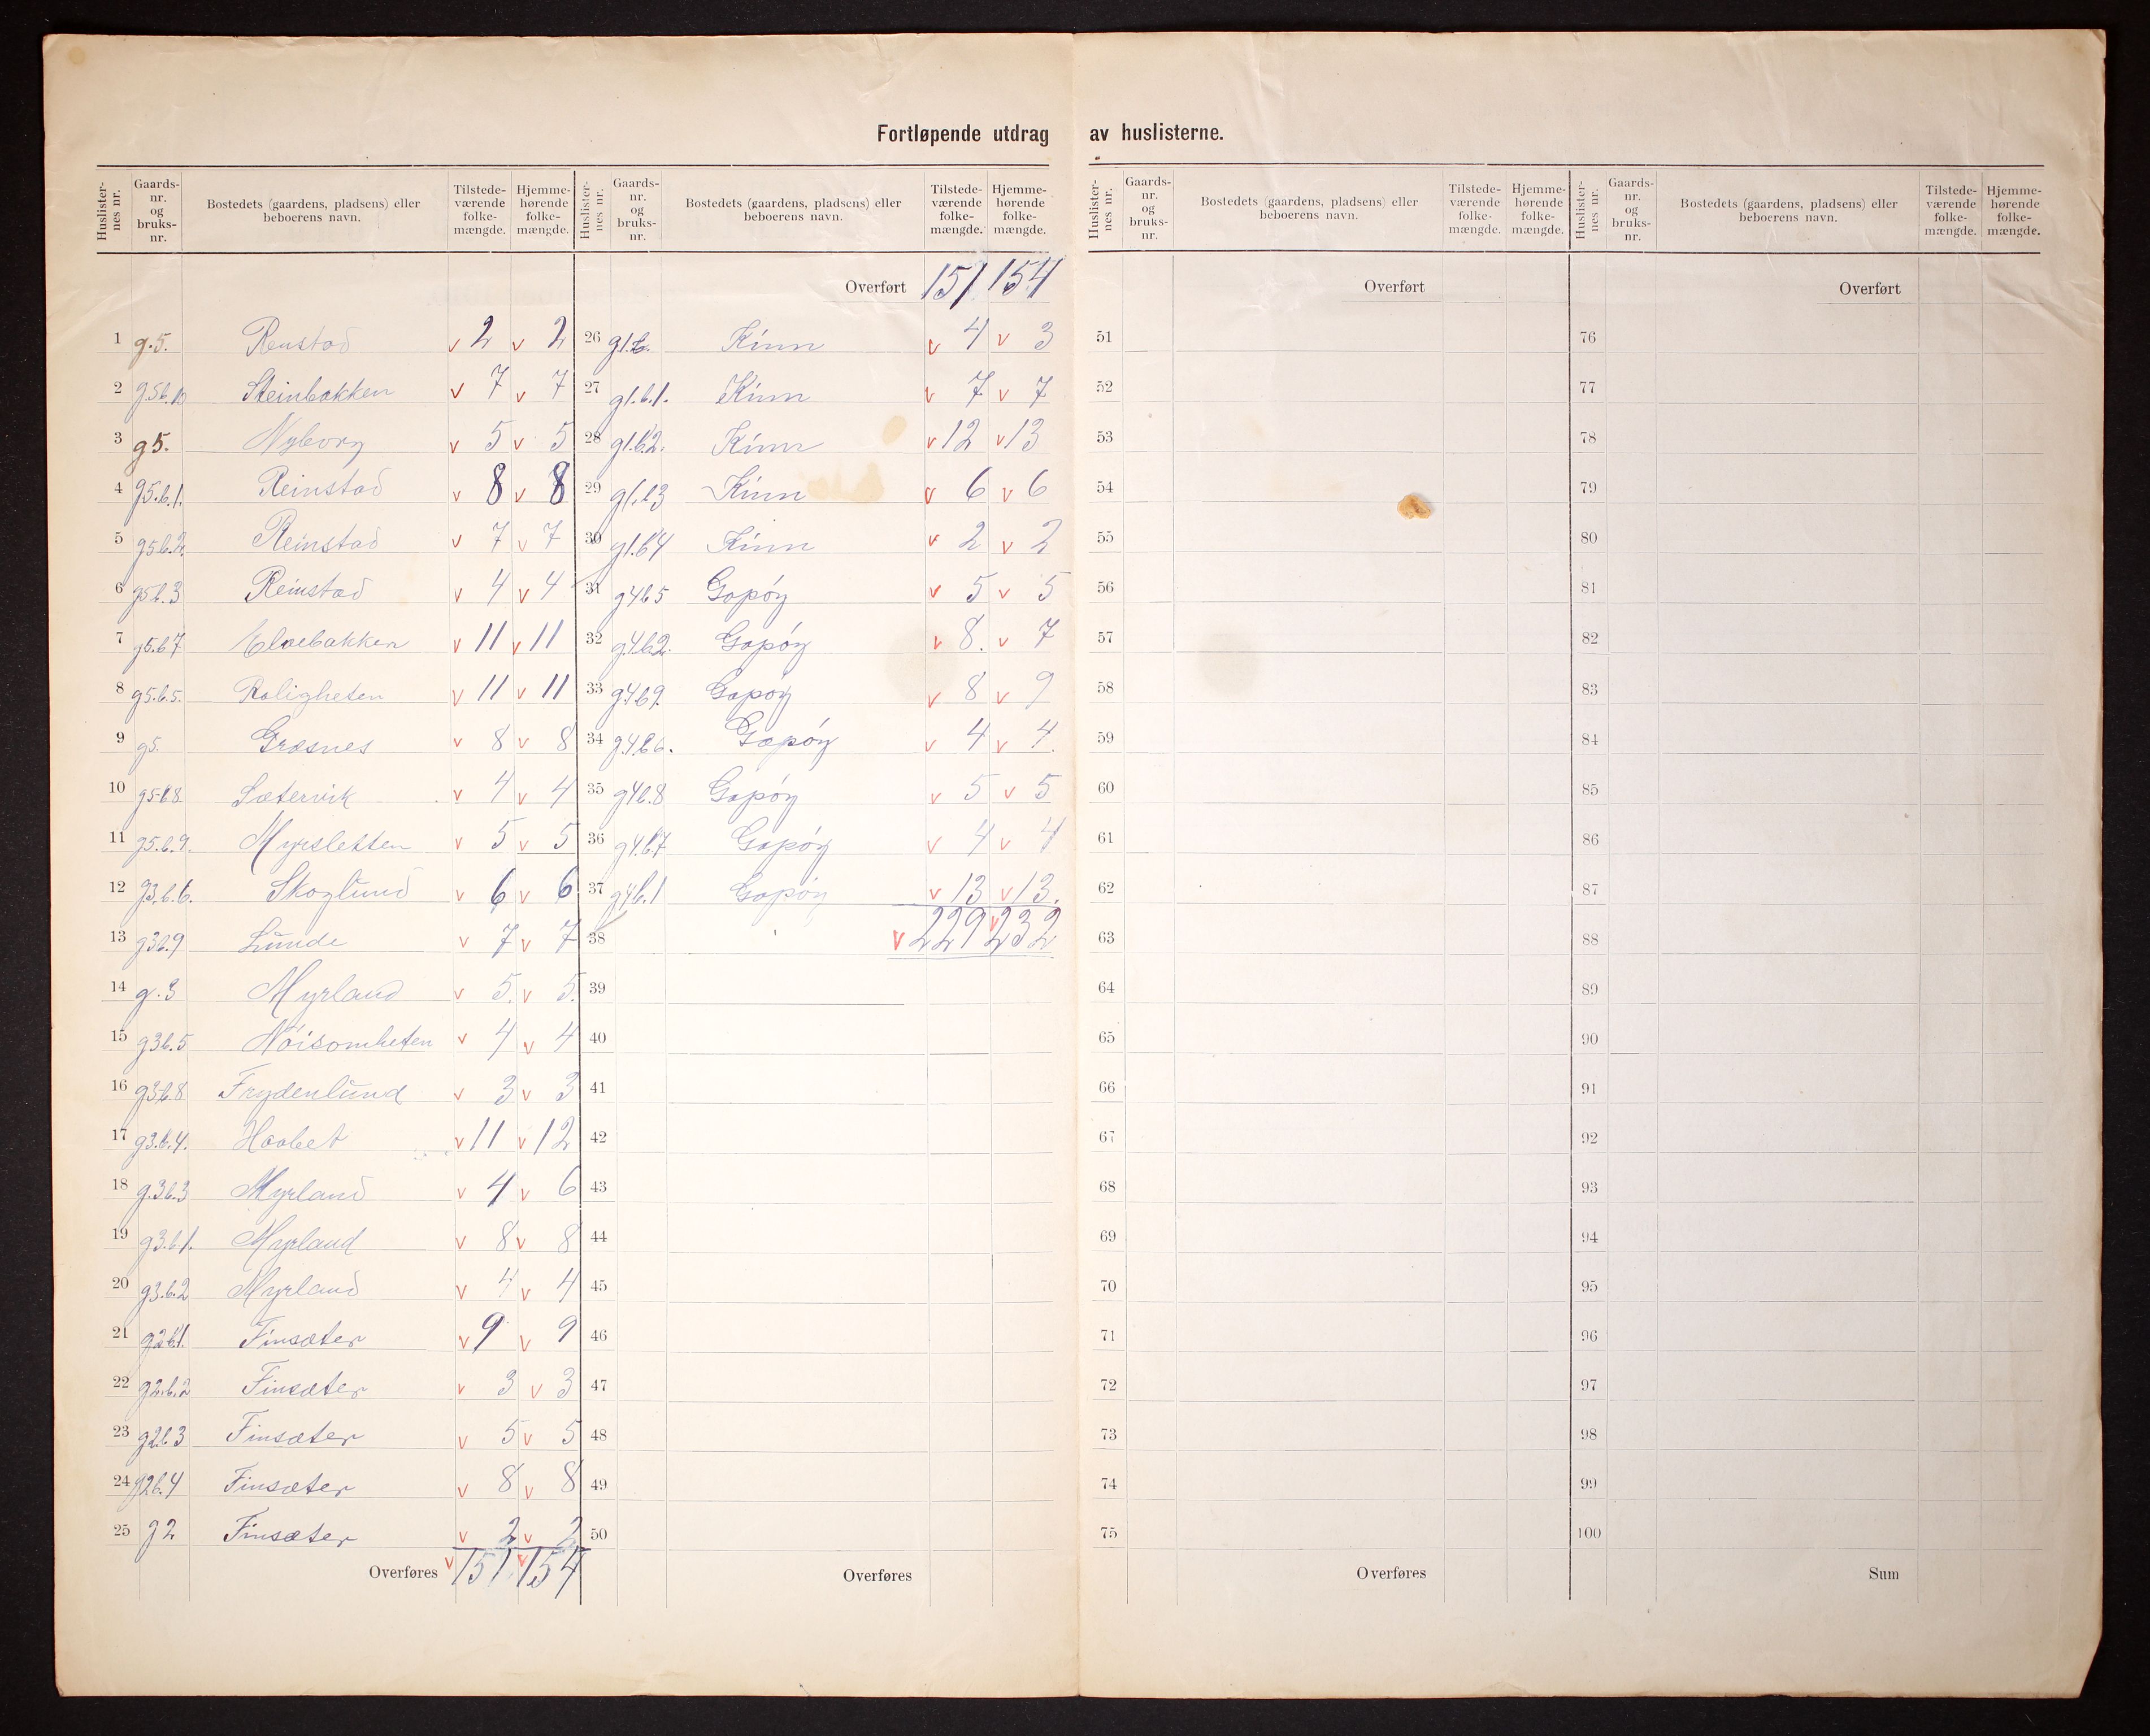 Fortløpende utdrag av huslisterne.
Huslister-nes nr. Gaards-nr. og bruks-nr. Bostedets (gaardens, pladsens) eller beboerens navn. Tilstede-værende folke-mængde. Hjemme-hørende folke-mængde.
1 g.5. Renstad v 2 v 2
2 g.5b.10 Steinbakken v 7 v 7
3 g5. Nyborg v 5 v 5
4 g5.b.1. Reinstad v 8 v 8
5 g5b.2. Reinstad v 7 v 7
6 g5b.3 Reinstad v 4 v 4
7 g5.b7 v 11 v 11
8 g5.b.5. Roligheten v 11 v 11
9 g5. Græsnes v 8 v 8
10 g5-b8 Sætervik v 4 v 4
11 g5.b.9. Myrsletten v 5 v 5
12 g3.b.6. Skoglund v 6 v 6
13 g3b.9 Lunde v 7 v 7
14 g.3 Myrland v 5. v 5.
15 g3b.5 Nöisomheten v 4 v 4
16 g3b.8 Frydenlund v 3 v 3
17 g3.b.4. Haabet v 11 v 12
18 g.3b.3 Myrland v 4 v 6
19 g3.b.1. Myrland v 8 v 8
20 g3.b.2 Myrland v 4 v 4
21 g2b.1. Finsæter v 9 v 9
22 g2.b.2 Finsæter v 3 v 3
23 g2b.3 Finsæter v 5 v 5
24 g2b.4 Finsæter v 8 v 8
25 g2 Finsæter v 2 v 2
Overføres v 151 v 154
Huslister-nes nr. Gaards-nr. og bruks-nr. Bostedets (gaardens, pladsens) eller beboerens navn. Tilstede-værende folke-mængde. Hjemme-hørende folke-mængde.
Overført 151 154
26 g1.b. Kinn v 4 v 3
27 g1.b.1. Kinn v 7 v 7
28 g1.b.2. Kinn v 12 v 13
29 g1.b3 Kinn v 6 v 6
30 g1.b4 Kinn v 2 v 2
31 g4b5 Gapöy v 5 v 5
32 g.4b.2. Gapöy v 8. v 7
33 g.4b9. Gapöy v 8 v 9
34 g.4.b6. Gapöy v 4 v 4.
35 g4b.8 Gapöy v 5 v 5
36 g4.b.7 Gapöy v 4 v 4
37 g4b.1 Gapöy v 13 v 13.
38 v 229 v 232
39
40
41
42
43
44
45
46
47
48
49
50
Overføres
Huslister-nes nr. Gaards-nr. og bruks-nr. Bostedets (gaardens, pladsens) eller beboerens navn. Tilstede-værende folke-mængde. Hjemme-hørende folke-mængde.
Overført
51
52
53
54
55
56
57
58
59
60
61
62
63
64
65
66
67
68
69
70
71
72
73
74
75
Overføres
Huslister-nes nr. Gaards-nr. og bruks-nr. Bostedets (gaardens, pladsens) eller beboerens navn. Tilstede-værende folke-mængde. Hjemme-hørende folke-mængde.
Overført
76
77
78
79
80
81
82
83
84
85
86
87
88
89
90
91
92
93
94
95
96
97
98
99
100
Sum